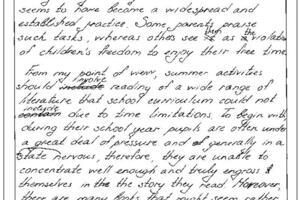 seems to have become a widespread and
established practice. Some parents praise
such tasks, whereas others see them as the violation
of children's freedom to enjoy their free time.
From my point of view, summer activities
should involve reading of a wide range of
literature that school curriculum could not
include due to time limitations. To begin with,
during their school year pupils are often under
a great deal of pressure and generally in a
state nervous, therefore, they are unable to
concentrate well enough and truly engross
themselves in the the story they read. Moreover,
there are many books that might seem rather